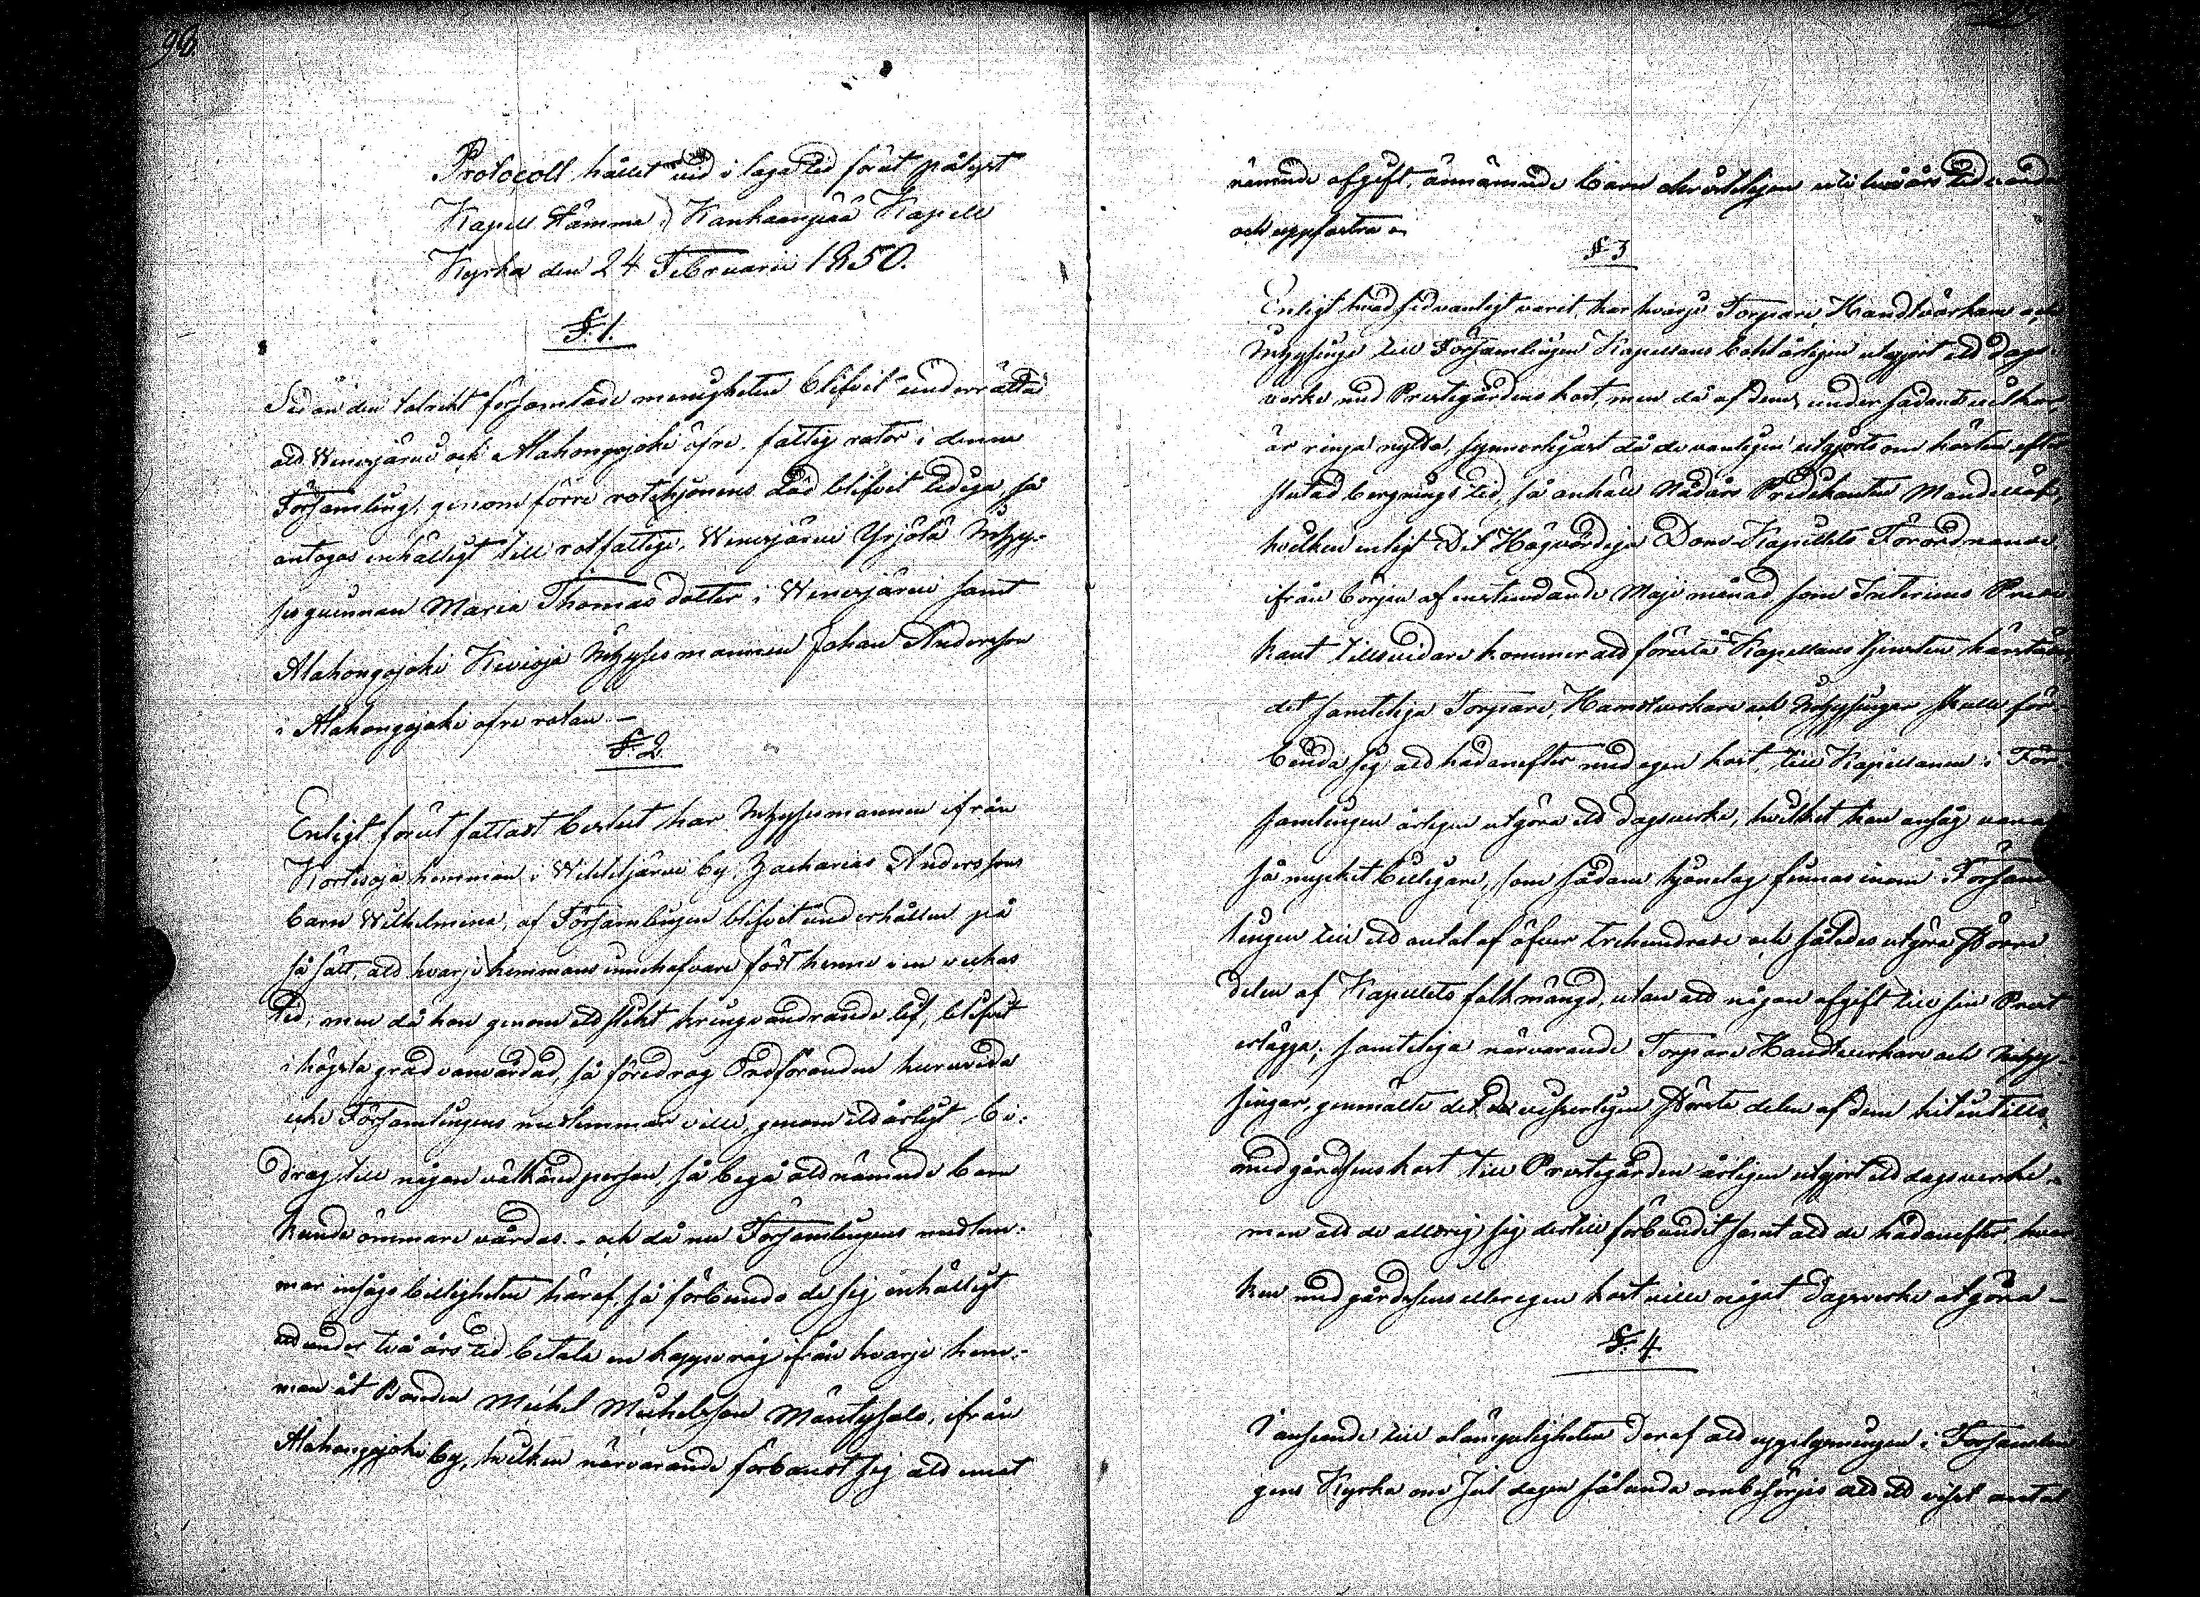 98
Protocoll hållet vid i laga tid förut pålyst
Kapell Stämma i Kankaanpää Kapell
Kyrka den 24 Februarii 1850.
§. 1.
Sedan den talrikt församlade menigheten blifvit underrättad
att Wenesjärvi och Alahongojoki öfre fattig rotor i denna
Församling, genom förre rotehjonens död blifvit lediga, så
antogos enhälligt till rotfattige, Wenesjärvi Yrjölä Inhyse
seqvinnan Maria Thomas dotter i Wenesjärvi samt
Alahongojoki Kivioja Inhyses mannen Johan Andersson
i Alahongojoki öfre rotan. –
§. 2.
Enligt förut fattadt beslut har Inhysesmannen ifrån
Kortisoja hemman i Wihteljärvi by, Zacharias Anderssons
barn Wilhelmina, af Församlingen blifvit underhållen på
så sätt, att hvarje hemmans innehafvare födt henne i en veckas
tid, men då hon genom ett slikt kringvandrande lif, blifvit
i högsta grad vanvårdad, så föredrog Ordföranden huruvida
icke Församlingens medlemmar ville, genom ett årligt bi:
drag till någon välkänd person, så begå att nämnde barn
kunde ömmare vårdas. – och då nu Församlingens medlem:
mar insågo billigheten häraf, så förbundo de sig enhälligt
att under två års tid betala en kappe råg ifrån hvarje hem:
man åt Bonden Michel Michelsson Mäntysalo, ifrån
Alahongojoki by, hvilken närvarande förband sig att emot
nämnde afgift, ännämnde barn under två års tid vårda
och uppfostra.
§ 3
Enligt hvad sedvanligt varit, har hvarje Torpare, Handtvärkare och
Inhysinge till Församlingens Kapellans bohl årligen utgjort ett dags-
verke med Prestegårdens kost, men då af dem, under sådant vilkor,
är ringa nytta, synnerligast då de vanligen utgjorts om hösten efter
slutad bergnings tid, så anhöll Nådårs Predikanten Mandellöf,
hvilken enligt Det Högvördiga Dom-Kapitlets Förordnande,
ifrån början af instundande Maji månad som Interims Predi-
kant tillsvidare kommer att förestå Kapellans tjensten härstädes
det samteliga Torpare, Handtverkare och Inhysingar skulle för-
binda sig att hädanefter med egen kost, till Kapellanen i För-
samlingen årligen utgöra ett dagsverke, hvilket han ansåg vara
så mycket billigare, som sådane hjonelag finnas inom Försam-
lingen till ett antal af öfver trehundrade och således utgöra större
delen af Kapellets folkmängd, utan att någon afgift till sin Prest
erlägga; samteliga närvarande Torpare Handtverkare och Inhy-
singar, genmälte det visserligen största delen af dem hitintills,
med gårdsens kost till Prestegården årligen utgjort ett dagsverke –
men att de aldrig sig dertill förbundit samt att de hädanefter, hvar-
ken med gårdsens eller egen kost ville något dagsverke utgöra –
§. 4.
I anseende till olämpligheten deraf att upplysningen i Församlin-
gens Kyrka om Jul dagen sålunda ombesörjes att ett visst antal